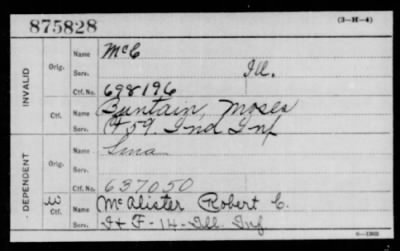 875828 (3-H-4)
INVALID
Orig. Name McC
Serv. Ill.
Ctf. No. 698196
Ctf. Name Buntain, Moses
Serv. F 59. Ind Inf
DEPENDENT
Orig. Name
Serv.
Ctf. No. 637050
W Ctf. Name McAlister Robert C.
Serv. I & F-14-Ill. Inf
6-1903